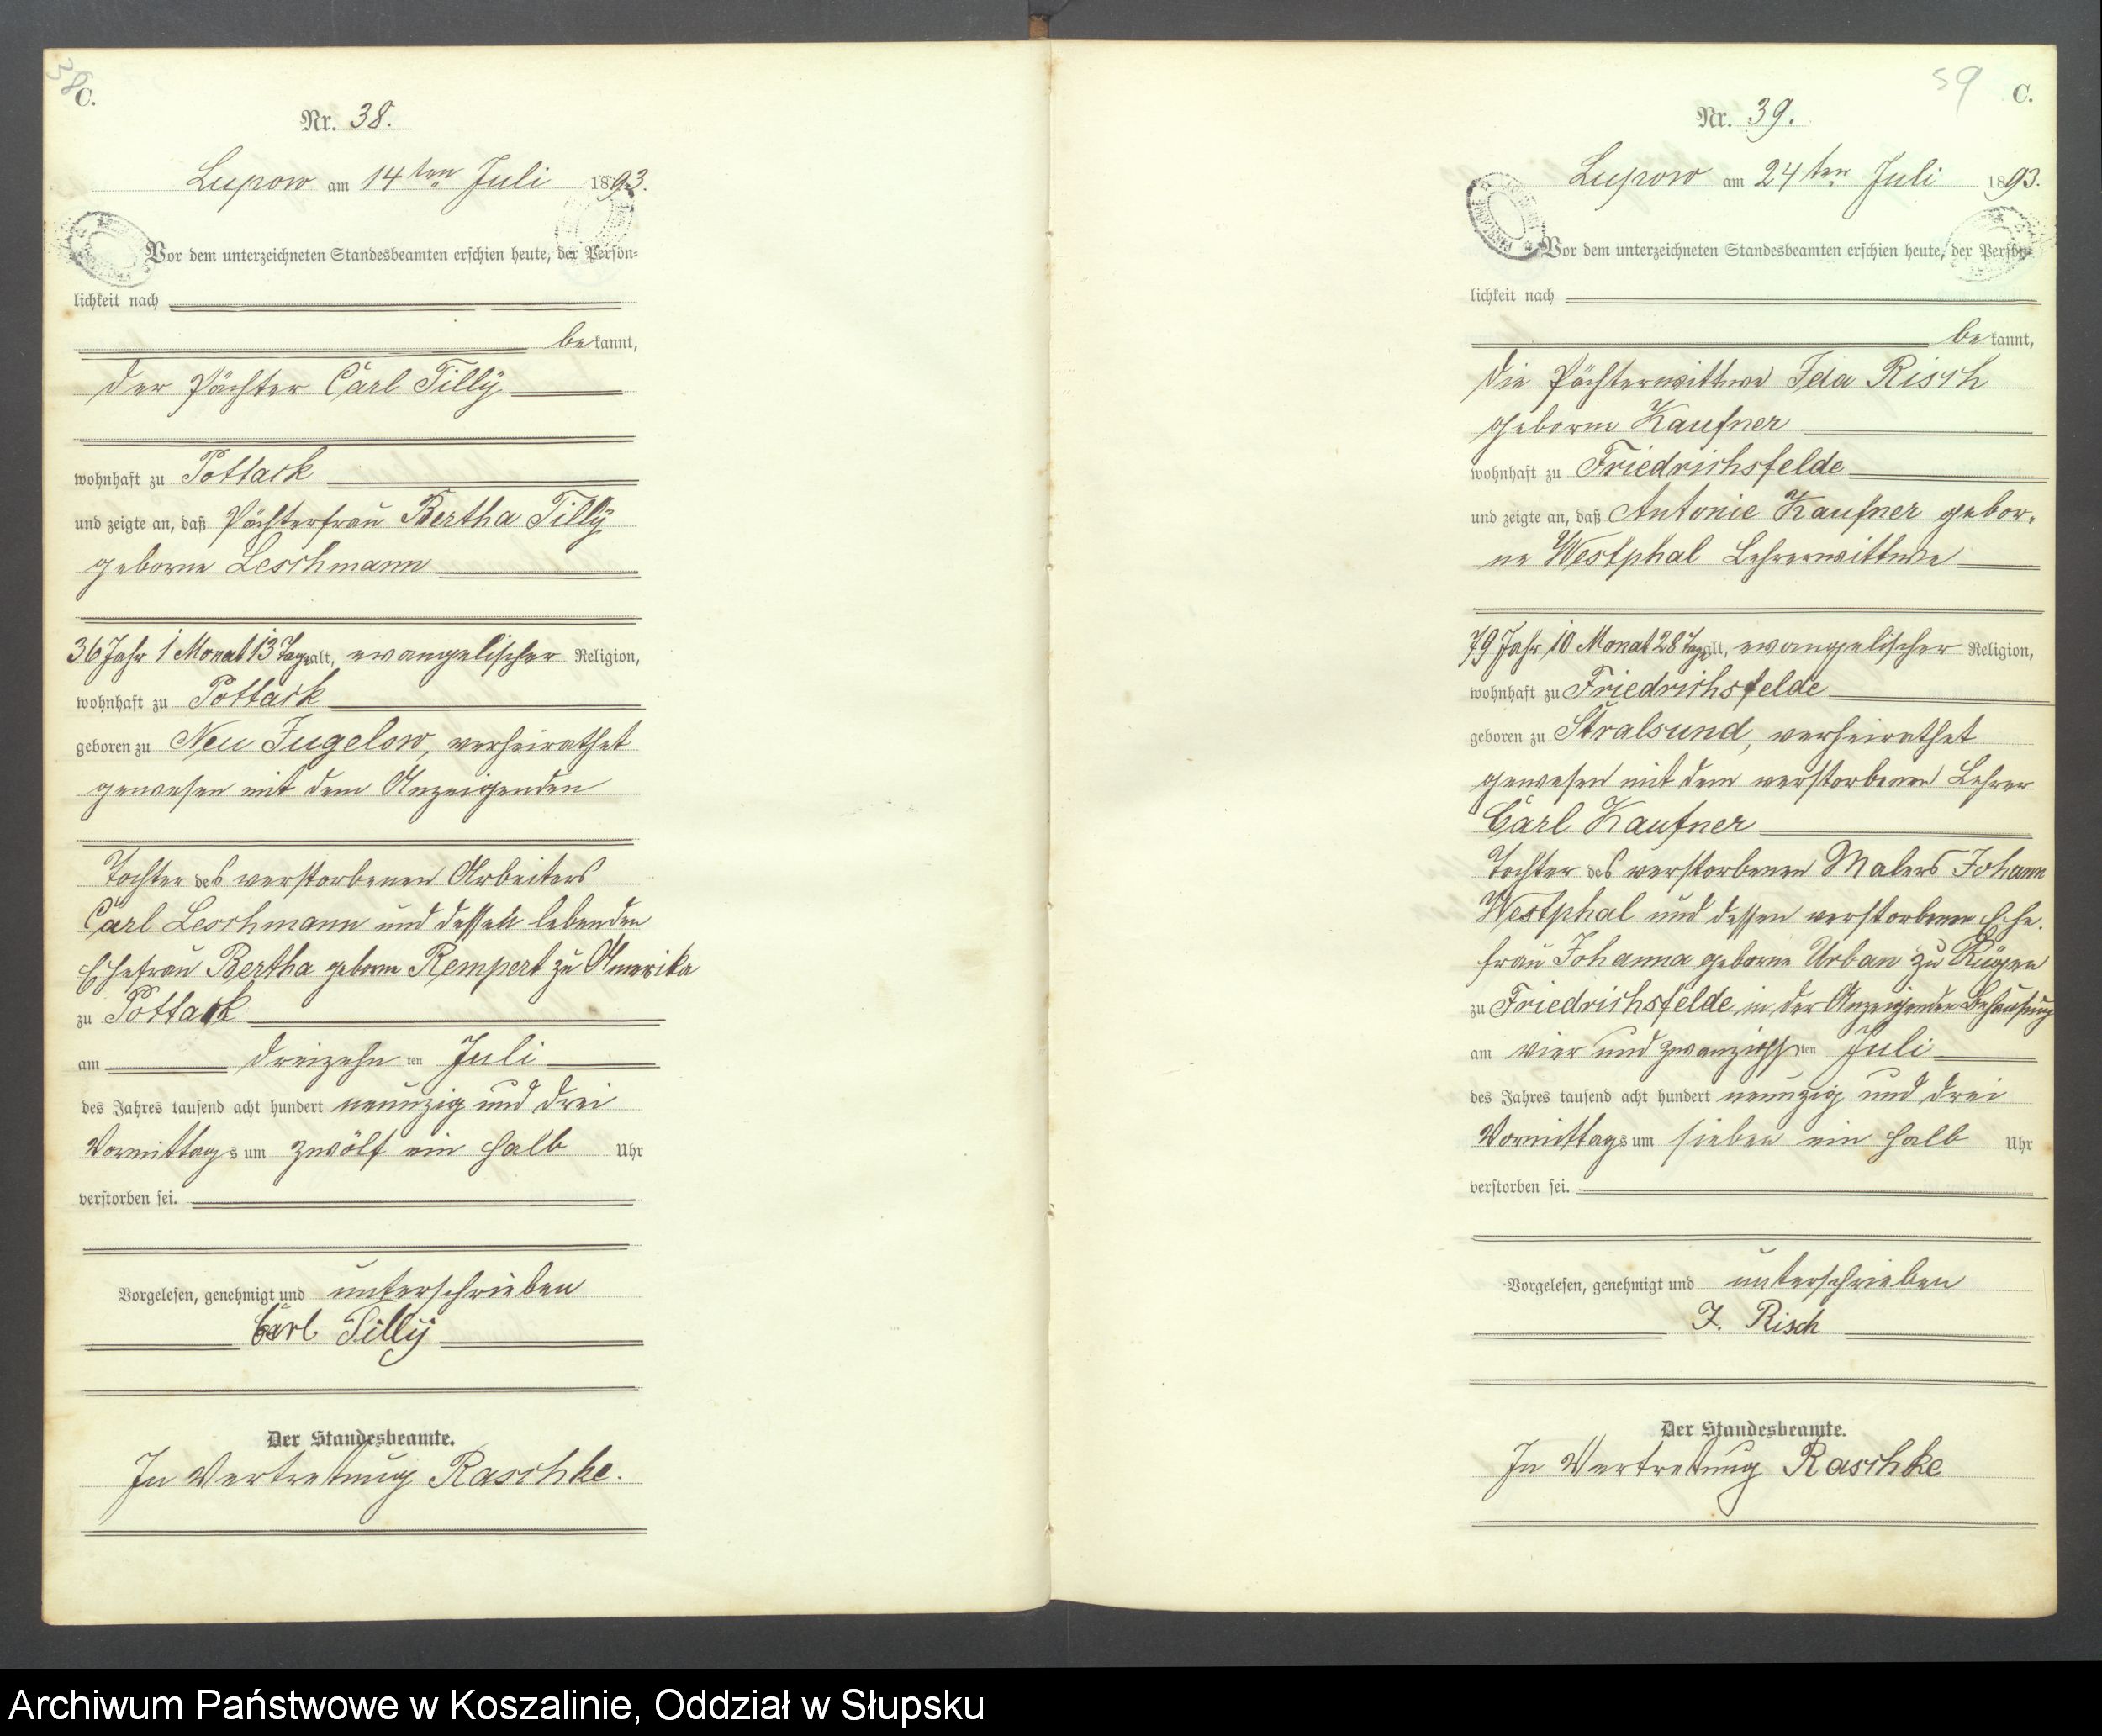 38
C.
Nr. 38.
Lupow am 14ten Juli 1893.
Vor dem unterzeichneten Standesbeamten erschien heute, der Persön-
lichkeit nach
bekannt,
der Pächter Carl Tilly
wohnhaft zu Pottack
und zeigte an, daß Pächterfrau Bertha Tilly
geborne Leschmann
36 Jahr 1 Monat 13 Tage alt, evangelischer Religion,
wohnhaft zu Pottack
geboren zu Neu Jugelow, verheirathet
gewesen mit dem Anzeigenden
Tochter des verstorbenen Arbeiters
Carl Leschmann und dessen lebenden
Ehefrau Bertha geborne Rempert zu Amerika
zu Pottack
am dreizehn ten Juli
des Jahres tausend acht hundert neunzig und drei
Vormittags um zwölf ein halb Uhr
verstorben sei.
Vorgelesen, genehmigt und unterschrieben
Carl Tilly
Der Standesbeamte.
In Vertretung Raschke.
39
C.
Nr. 39.
Lupow am 24ten Juli 1893.
Vor dem unterzeichneten Standesbeamten erschien heute, der Persön-
lichkeit nach
bekannt,
die Pächterwittwe Ida Risch
geborne Kaufner
wohnhaft zu Friedrichsfelde
und zeigte an, daß Antonie Kaufner gebor-
ne Westphal Lehrerwittwe
79 Jahr 10 Monat 28 Tage alt, evangelischer Religion,
wohnhaft zu Friedrichsfelde
geboren zu Stralsund, verheirathet
gewesen mit dem verstorbenen Lehrer
Carl Kaufner
Tochter des verstorbenen Malers Johann
Westphal und dessen verstorbenen Ehe-
frau Johanna geborne Urban zu Rügen
zu Friedrichsfelde in der Anzeigenden Behausung
am vier und zwanzigsten Juli
des Jahres tausend acht hundert neunzig und drei
Vormittags um sieben ein halb Uhr
verstorben sei.
Vorgelesen, genehmigt und unterschrieben
I. Risch
Der Standesbeamte.
In Vertretung Raschke
Archiwum Państwowe w Koszalinie, Oddział w Słupsku